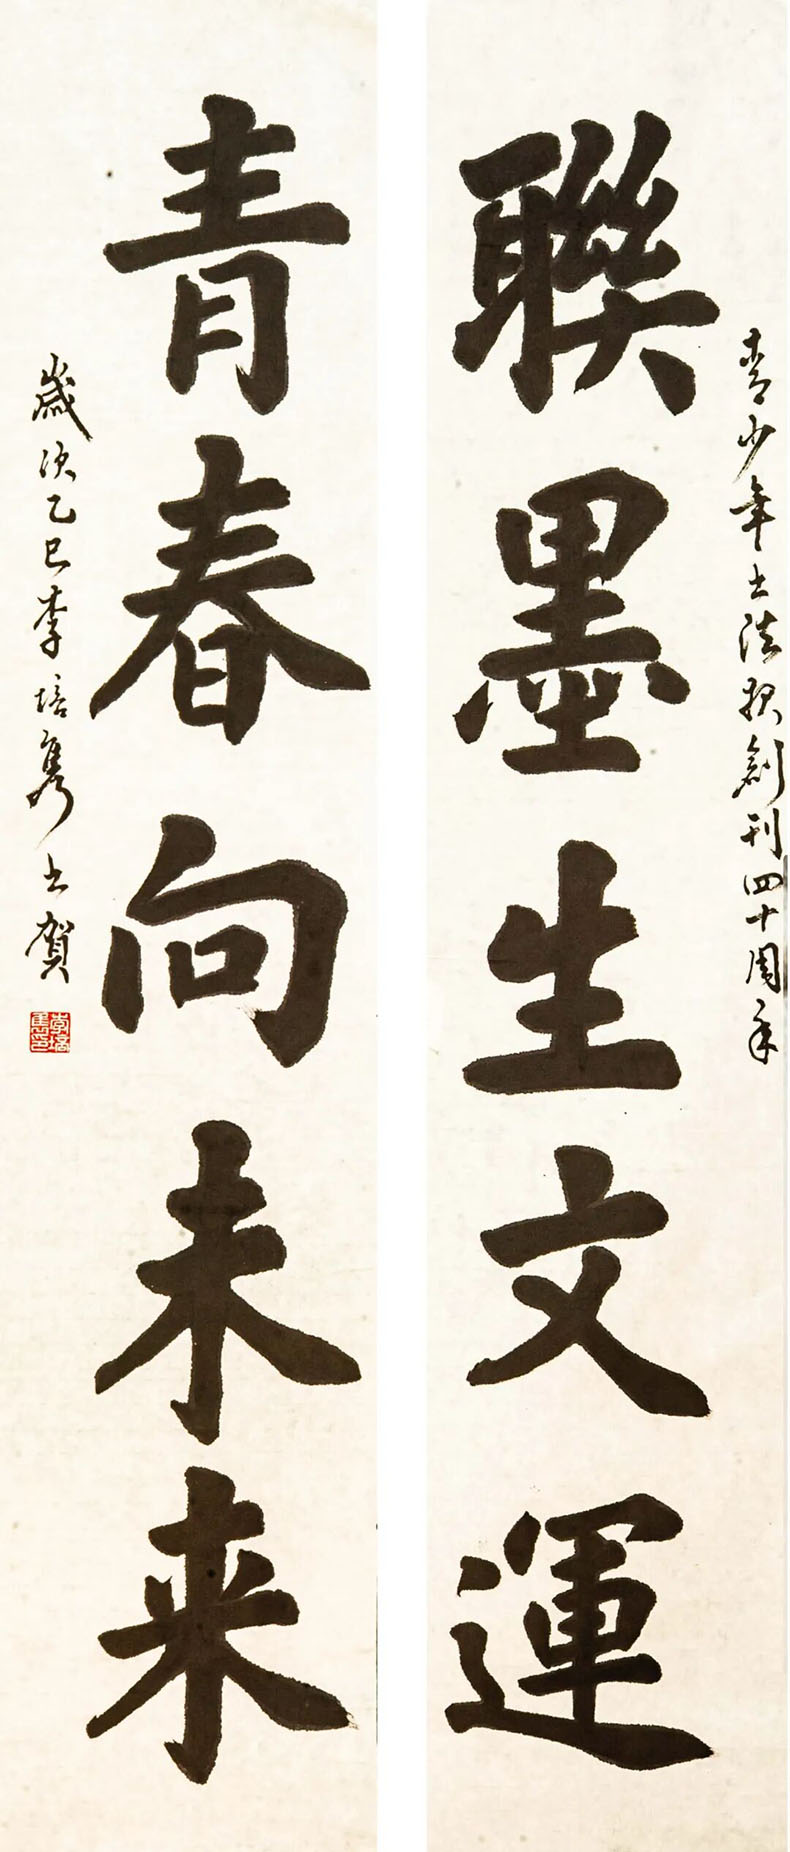 青少年书法报創刊四十周年
聯墨生文運
青春向未来
歲次乙巳李培隽书賀